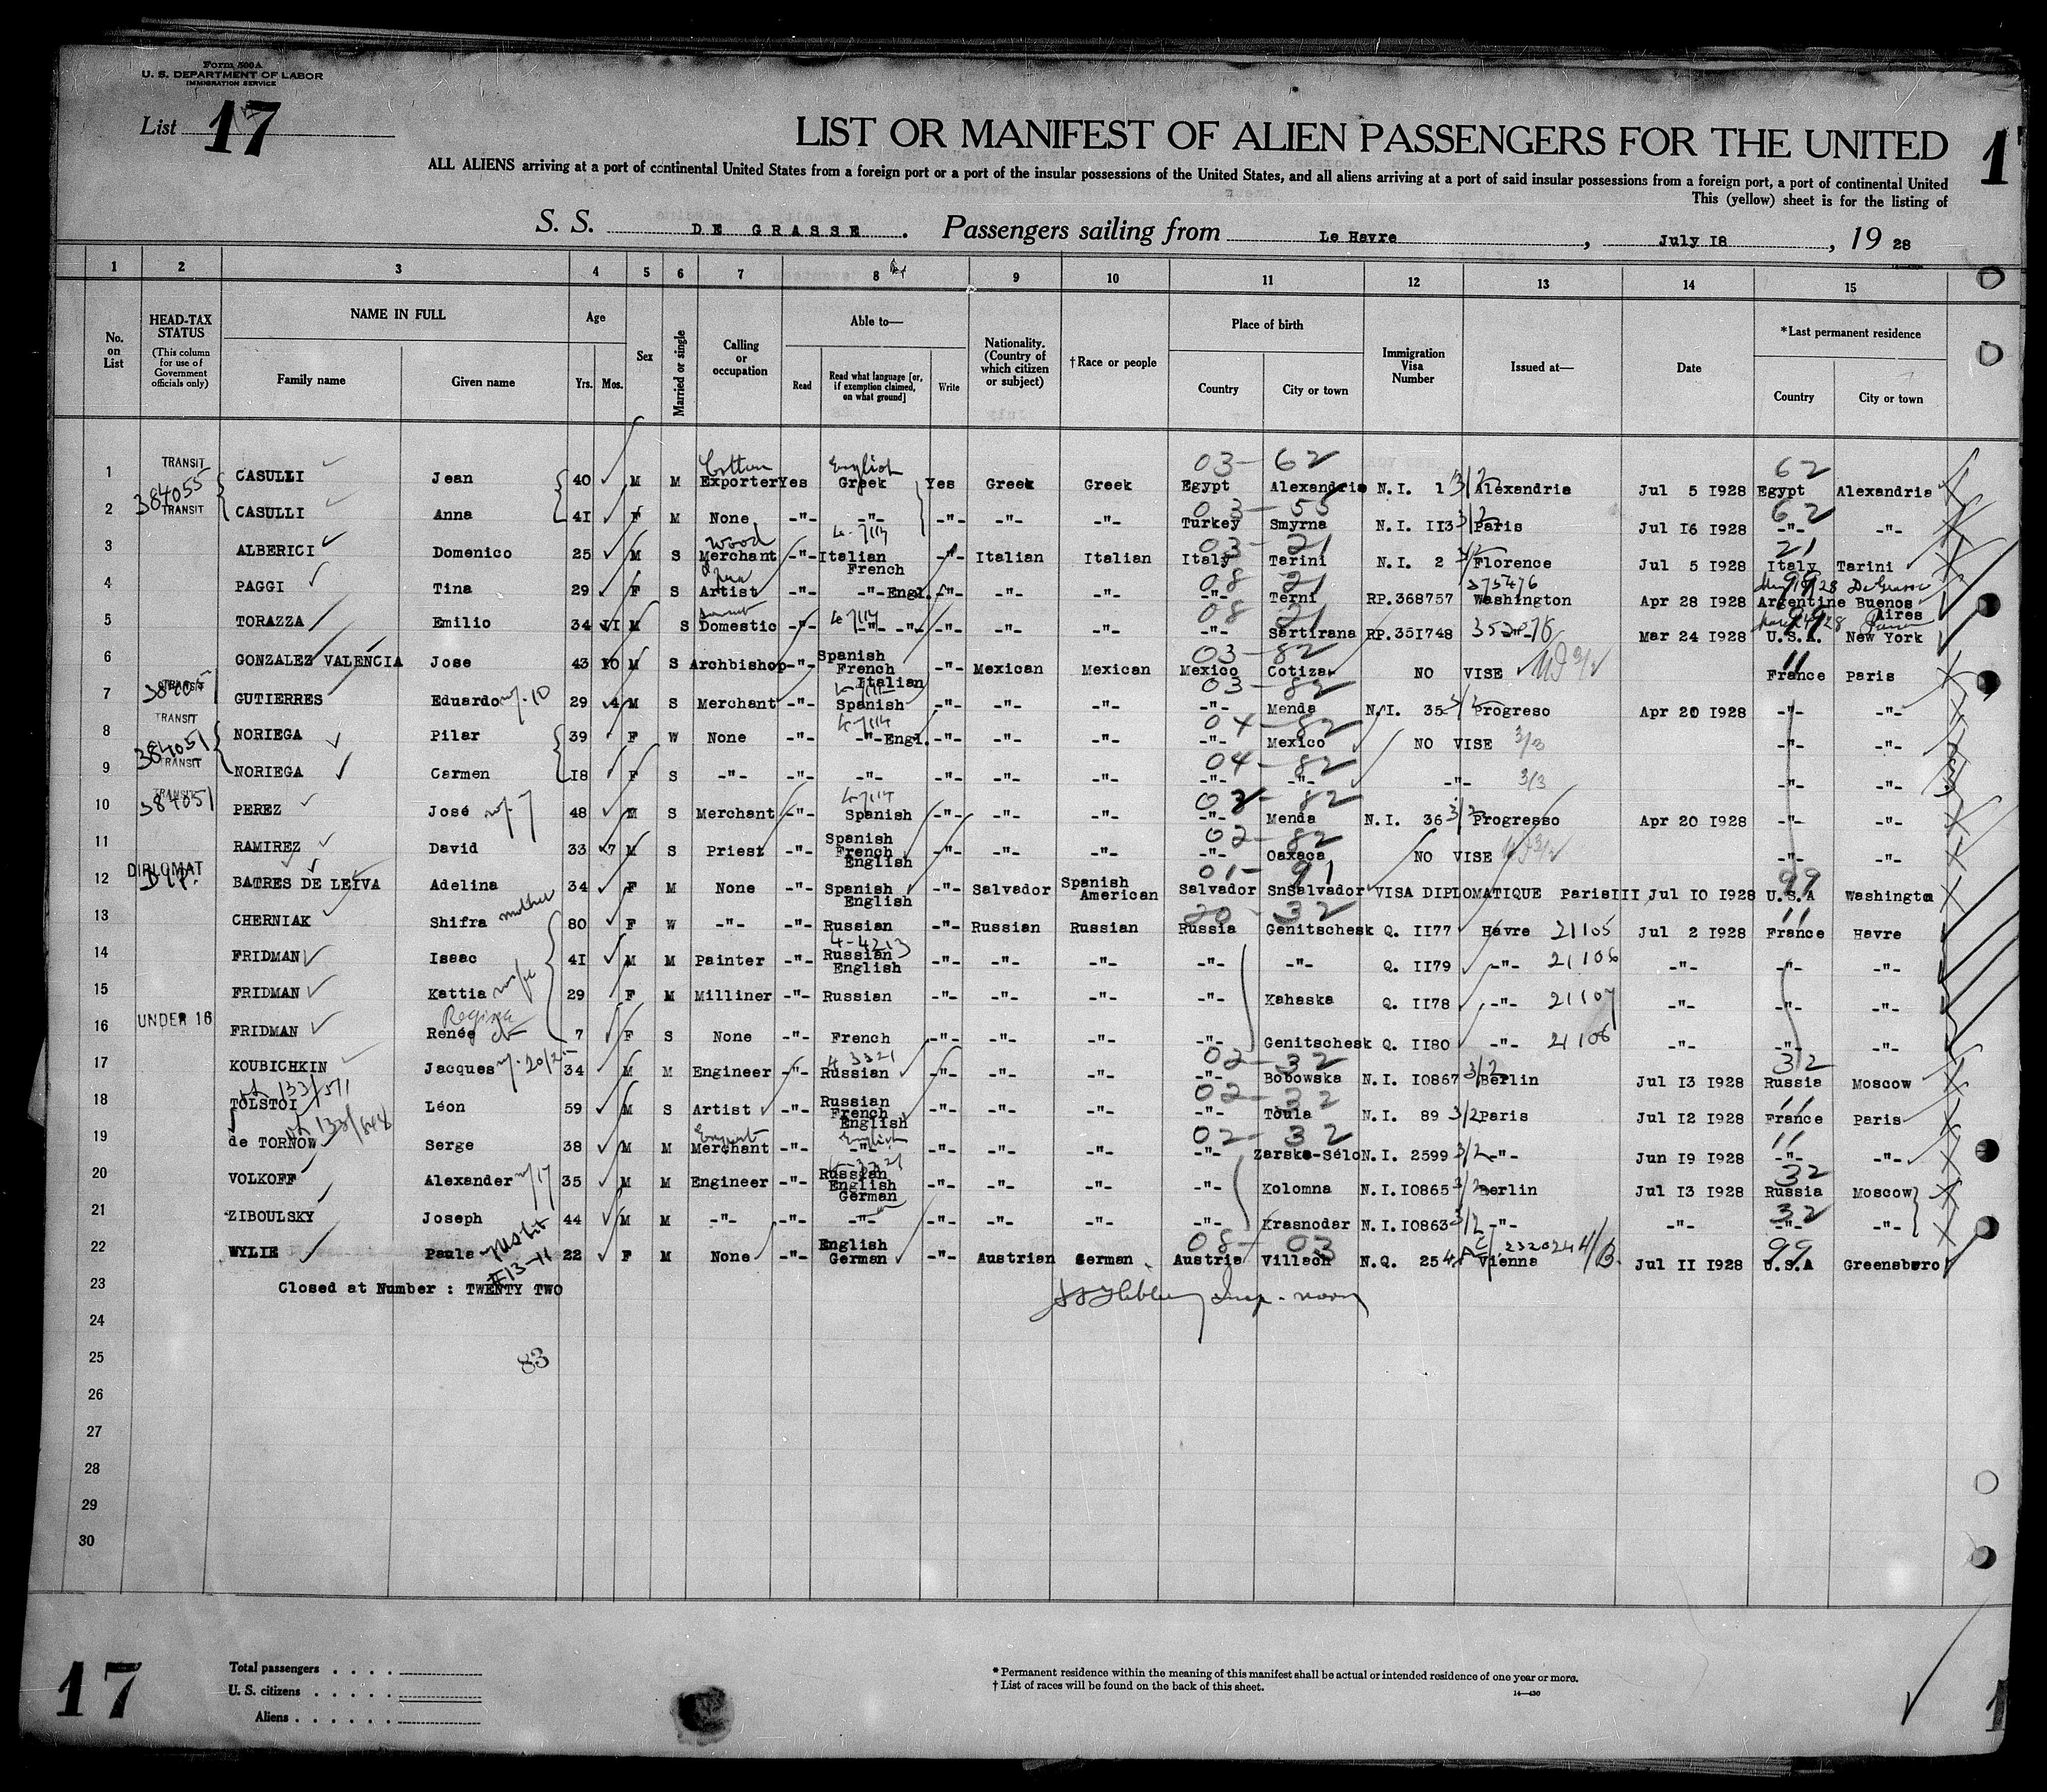 Form 500A
U. S. DEPARTMENT OF LABOR
IMMIGRATION SERVICE
List 17
LIST OR MANIFEST OF ALIEN PASSENGERS FOR THE UNITED
ALL ALIENS arriving at a port of continental United States from a foreign port or a port of the insular possessions of the United States, and all aliens arriving at a port of said insular possessions from a foreign port, a port of continental United
This (yellow) sheet is for the listing of
S. S. DE GRASSE. Passengers sailing from Le Havre, July 18, 19 28
1 2 3 4 5 6 7 8 9 10 11 12 13 14 15
No. on List
HEAD-TAX STATUS (This column for use of Government officials only)
NAME IN FULL Family name Given name
Age Yrs. Mos.
Sex
Married or single
Calling or occupation
Able to— Read Read what language [or, if exemption claimed, on what ground] Write
Nationality. (Country of which citizen or subject)
†Race or people
Place of birth Country City or town
Immigration Visa Number
Issued at—
Date
*Last permanent residence Country City or town
03-62 62
1 TRANSIT CASULLI Jean 40 M M Cotton Exporter Yes English Greek Yes Greek Greek Egypt Alexandria N.I. 1 3/2 Alexandria Jul 5 1928 Egypt Alexandria
384055
03-55 62
2 TRANSIT CASULLI Anna 41 F M None -"- -"- -"- -"- -"- Turkey Smyrna N.I. 113 3/2 Paris Jul 16 1928 -"- -"-
03-21 21
3 ALBERICI Domenico 25 M S Wood Merchant -"- Italian French -"- Italian Italian Italy Tarini N.I. 2 3/2 Florence Jul 5 1928 Italy Tarini
08 21 99
4 PAGGI Tina 29 F S Artist -"- -"- Engl. -"- -"- -"- -"- Terni RP.368757 375476 Washington Apr 28 1928 Argentine Buenos Aires
08 21 99
5 TORAZZA Emilio 34 11 M S Domestic -"- -"- -"- -"- -"- -"- Sartirana RP.351748 Mar 24 1928 U.S.A. New York
03-82 11
6 GONZALEZ VALENCIA Jose 43 10 M S Archbishop -"- Spanish French Italian -"- Mexican Mexican Mexico Cotiza NO VISE France Paris
03-82
7 TRANSIT GUTIERRES Eduardo w/. 10 29 4 M S Merchant -"- Spanish -"- -"- -"- -"- Menda N.I. 35 3/2 Progreso Apr 20 1928 -"- -"-
04-82
8 TRANSIT NORIEGA Pilar 39 F W None -"- -"- Engl. -"- -"- -"- -"- Mexico NO VISE 3/3 -"- -"-
384051
04-82
9 TRANSIT NORIEGA Carmen 18 F S -"- -"- -"- -"- -"- -"- -"- -"- -"- 3/3 -"- -"-
82
10 TRANSIT 384051 PEREZ José w/. 7 48 M S Merchant -"- Spanish -"- -"- -"- -"- Menda N.I. 36 3/2 Progresso Apr 20 1928 -"- -"-
02-82
11 RAMIREZ David 33 7 M S Priest -"- Spanish French English -"- -"- -"- -"- Oaxaca NO VISE -"- -"-
01-91 99
12 DIPLOMAT Dip. BATRES DE LEIVA Adelina 34 F M None -"- Spanish English -"- Salvador Spanish American Salvador SnSalvador VISA DIPLOMATIQUE ParisIII Jul 10 1928 U.S.A Washington
20-32 11
13 CHERNIAK Shifra mother 80 F W -"- -"- Russian -"- Russian Russian Russia Genitschesk Q. 1177 Havre 21105 Jul 2 1928 France Havre
14 FRIDMAN Isaac 41 M M Painter -"- Russian English -"- -"- -"- -"- -"- Q. 1179 -"- 21106 -"- -"- -"-
15 FRIDMAN Kattia wife 29 F M Milliner -"- Russian -"- -"- -"- -"- Kahaska Q. 1178 -"- 21107 -"- -"- -"-
16 UNDER 16 FRIDMAN Regina Renée 7 F S None -"- French -"- -"- -"- -"- Genitschesk Q. 1180 -"- 21106 -"- -"- -"-
02-32 32
17 KOUBICHKIN Jacques w/. 20/21 34 M M Engineer -"- Russian -"- -"- -"- -"- Bobowska N.I. 10867 3/2 Berlin Jul 13 1928 Russia Moscow
133/571
02-32 11
18 TOLSTOI Léon 59 M S Artist -"- Russian French English -"- -"- -"- -"- Toula N.I. 89 3/2 Paris Jul 12 1928 France Paris
133/648
02-32 11
19 de TORNOW Serge 38 M M Merchant -"- English -"- -"- -"- -"- -"- Zarska-Sélo N.I. 2599 3/2 -"- Jun 19 1928 -"- -"-
32
20 VOLKOFF Alexander w/17 35 M M Engineer -"- Russian English German -"- -"- -"- -"- Kolomna N.I.10865 3/2 Berlin Jul 13 1928 Russia Moscow
32
21 ZIBOULSKY Joseph 44 M M -"- -"- -"- -"- -"- -"- -"- Krasnodar N.I.10863 3/2 -"- -"- -"- -"-
08-03 99
22 WYLIE Paula 22 F M None -"- English German -"- Austrian German Austria Villach N.Q. 254 Vienna Jul 11 1928 U.S.A Greensboro
23 Closed at Number : TWENTY TWO
24
25 83
26
27
28
29
30
17
Total passengers
U. S. citizens
Aliens
* Permanent residence within the meaning of this manifest shall be actual or intended residence of one year or more.
† List of races will be found on the back of this sheet.
14—430